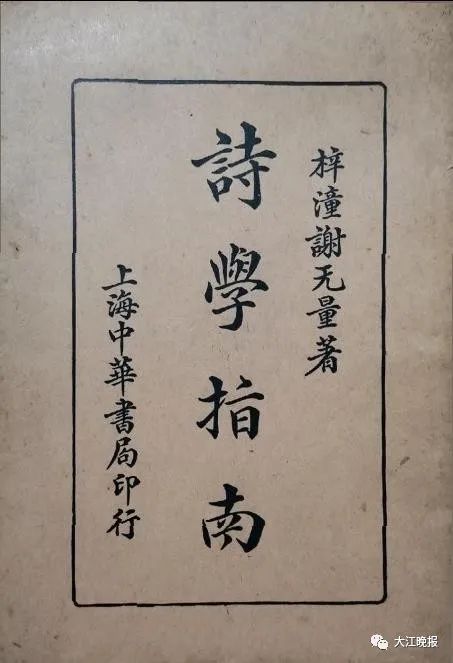 梓潼謝无量著
詩學指南
上海中華書局印行
大江晚报